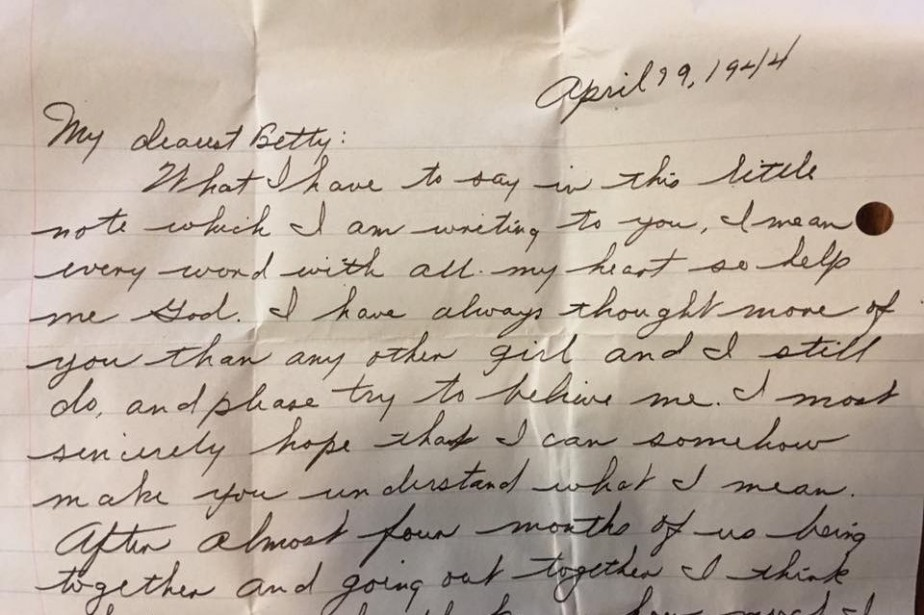 April 29, 1944
My dearest Betty:
What I have to say in this little
note which I am writing to you, I mean
every word with all my heart so help
me God. I have always thought more of
you than any other girl and I still
do, and please try to believe me. I most
sincerely hope that I can somehow
make you understand what I mean.
After almost four months of us being
together and going out together I think